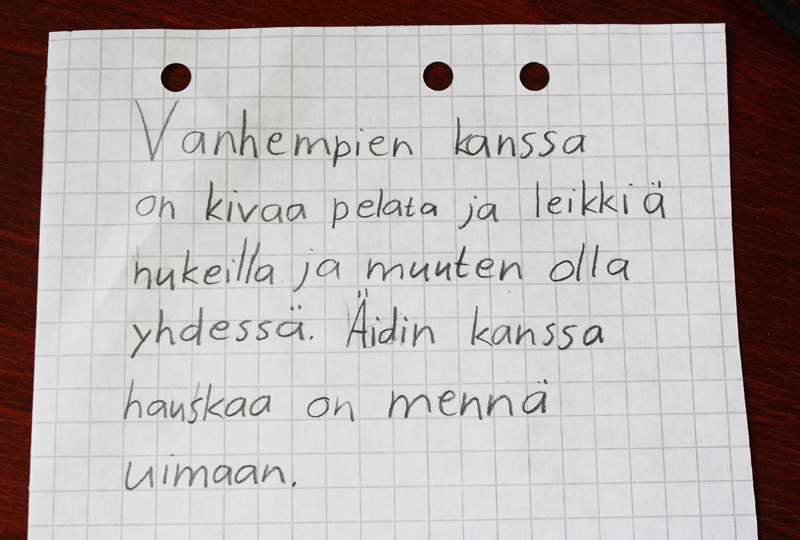 Vanhempien kanssa
on kivaa pelata ja leikkiä
nukeilla ja muuten olla
yhdessä. Äidin kanssa
hauskaa on mennä
uimaan.